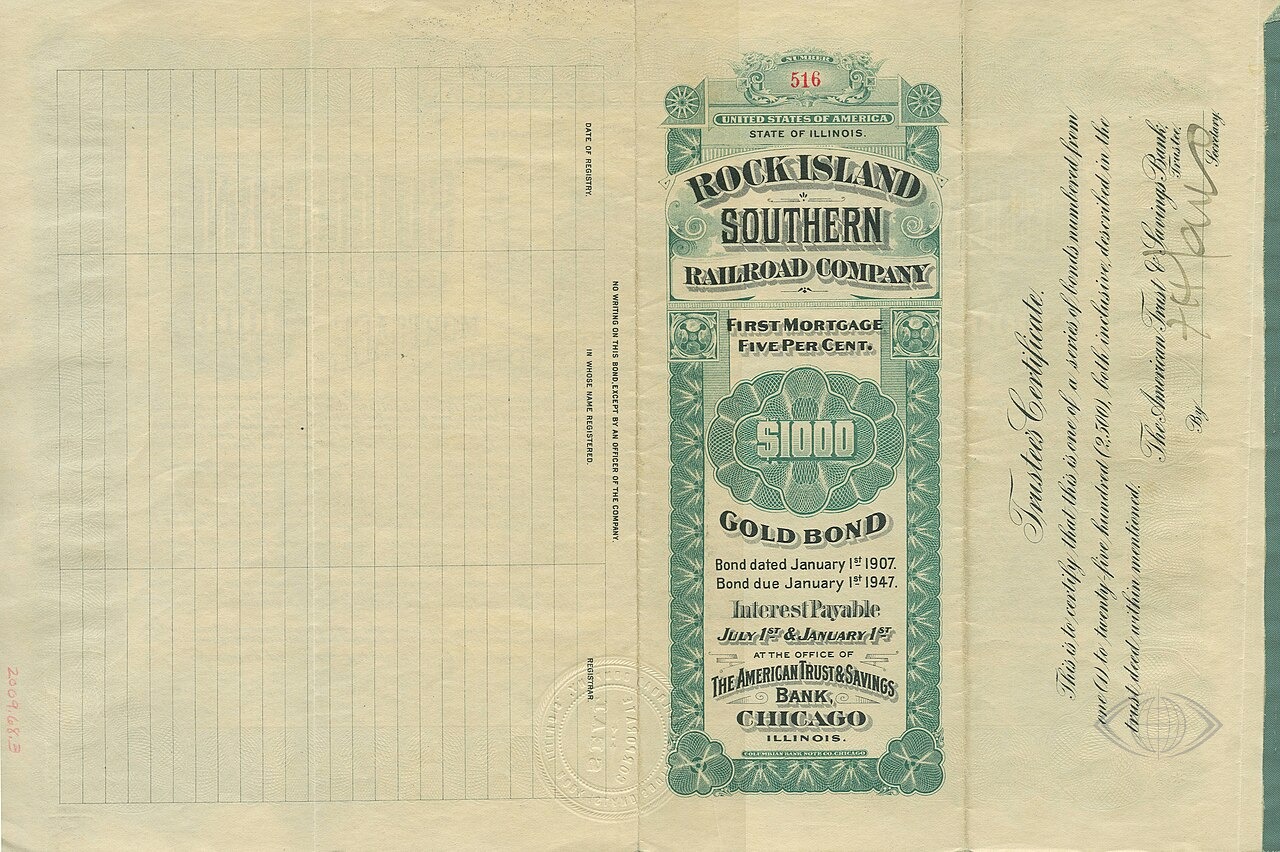 NUMBER
516
UNITED STATES OF AMERICA
STATE OF ILLINOIS.
ROCK ISLAND
SOUTHERN
RAILROAD COMPANY
FIRST MORTGAGE
FIVE PER CENT.
$1000
GOLD BOND
Bond dated January 1st 1907.
Bond due January 1st 1947.
Interest Payable
JULY 1ST & JANUARY 1ST
AT THE OFFICE OF
THE AMERICAN TRUST & SAVINGS
BANK,
CHICAGO
ILLINOIS.
COLUMBIAN BANK NOTE CO. CHICAGO
NO WRITING ON THIS BOND, EXCEPT BY AN OFFICER OF THE COMPANY.
DATE OF REGISTRY.
IN WHOSE NAME REGISTERED.
REGISTRAR.
Trustee's Certificate.
This is to certify that this is one of a series of bonds numbered from
one (1) to twenty-five hundred (2,500), both inclusive, described in the
trust deed within mentioned.
The American Trust & Savings Bank,
Trustee,
By
Secretary
2009.68.3